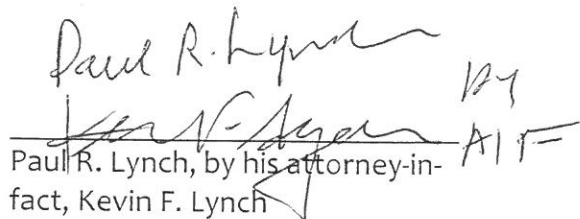 Paul R. Lynch
by
Kevin F. Lynch AIF
Paul R. Lynch, by his attorney-in-
fact, Kevin F. Lynch